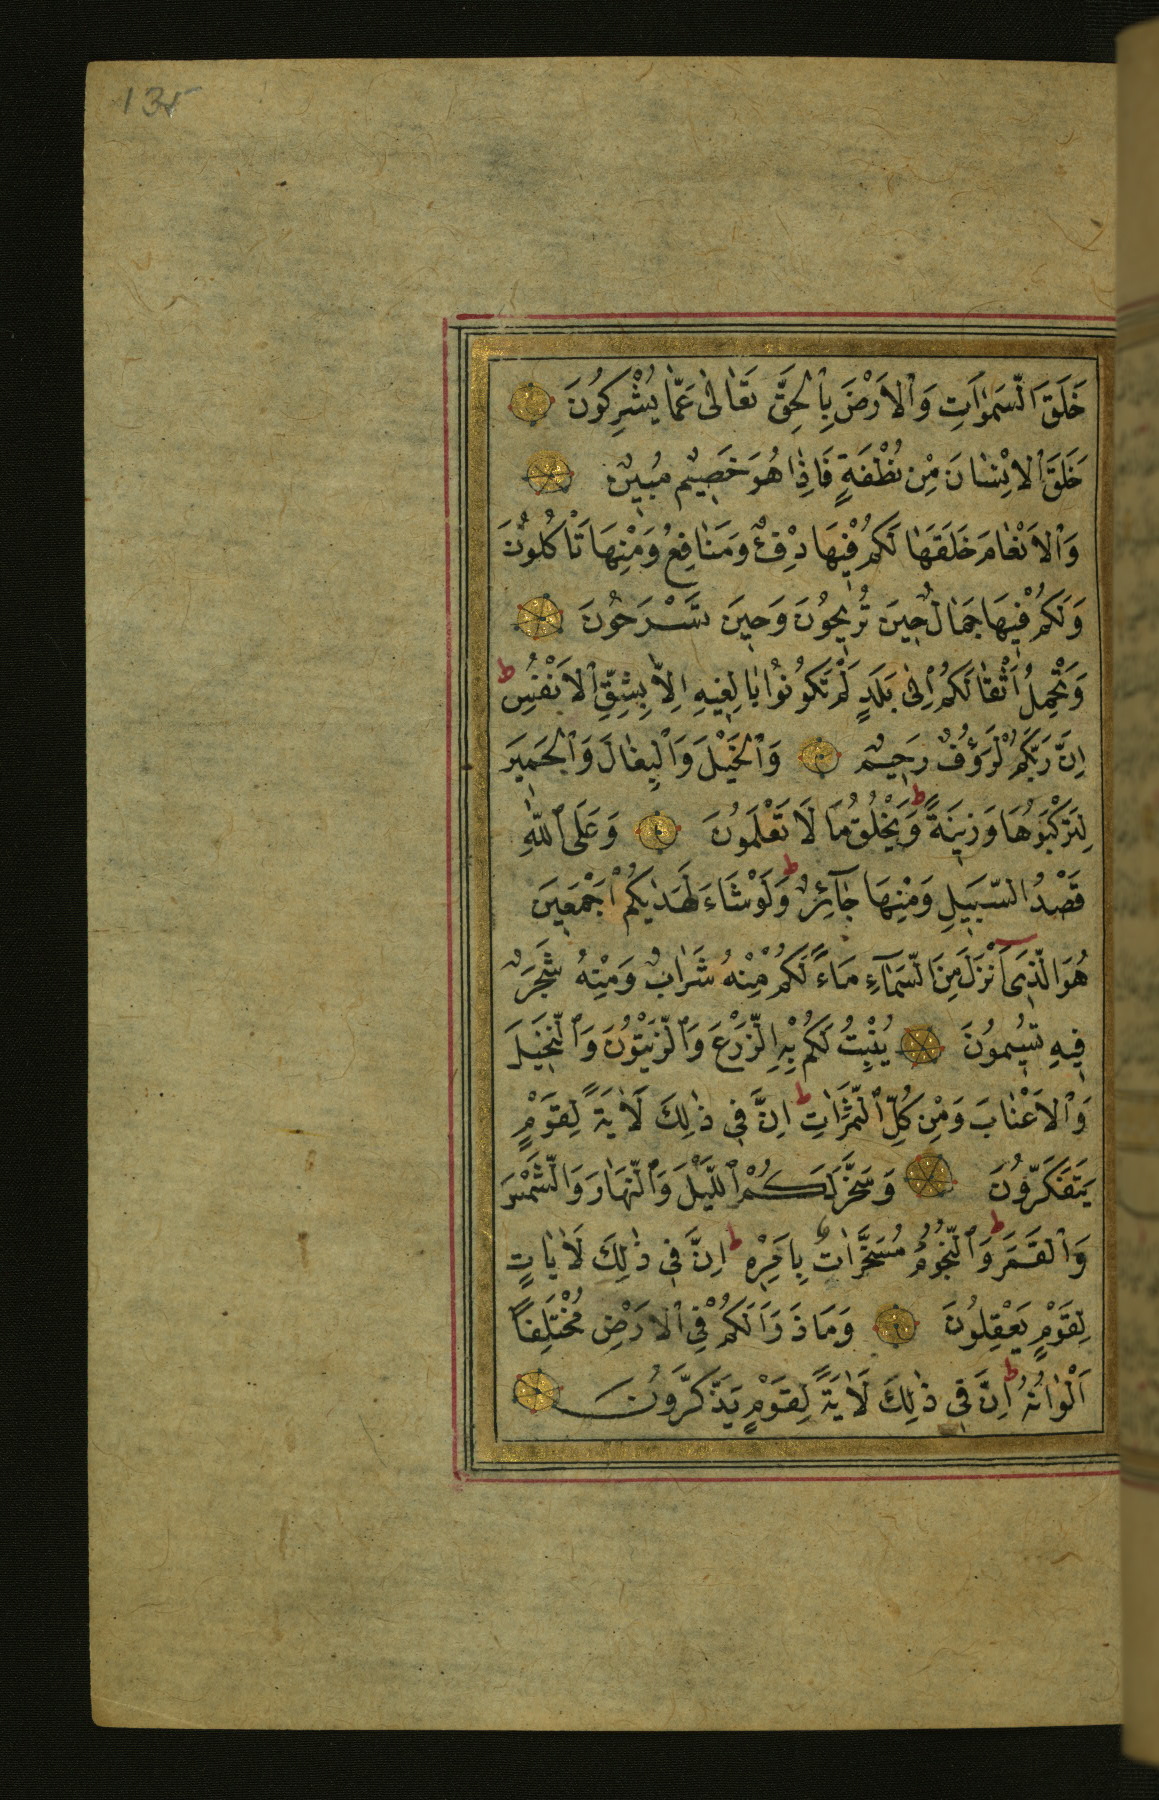 135
خَلَقَ السَّمٰوَاتِ وَالْاَرْضَ بِالْحَقِّ تَعَالٰى عَمَّا يُشْرِكُونَ
خَلَقَ الْاِنْسَانَ مِنْ نُطْفَةٍ فَاِذَا هُوَ خَصِيمٌ مُبِينٌ
وَالْاَنْعَامَ خَلَقَهَا لَكُمْ فِيهَا دِفْءٌ وَمَنَافِعُ وَمِنْهَا تَأْكُلُونَ
وَلَكُمْ فِيهَا جَمَالٌ حِينَ تُرِيحُونَ وَحِينَ تَسْرَحُونَ
وَتَحْمِلُ اَثْقَالَكُمْ اِلٰى بَلَدٍ لَمْ تَكُونُوا بَالِغِيهِ اِلَّا بِشِقِّ الْاَنْفُسِ ط
اِنَّ رَبَّكُمْ لَرَؤُفٌ رَحِيمٌ وَالْخَيْلَ وَالْبِغَالَ وَالْحَمِيرَ
لِتَرْكَبُوهَا وَزِينَةً ط وَيَخْلُقُ مَا لَا تَعْلَمُونَ وَعَلَى اللّٰهِ
قَصْدُ السَّبِيلِ وَمِنْهَا جَآئِرٌ ط وَلَوْ شَاءَ لَهَدٰيكُمْ اَجْمَعِينَ
هُوَ الَّذِى اَنْزَلَ مِنَ السَّمَآءِ مَاءً لَكُمْ مِنْهُ شَرَابٌ وَمِنْهُ شَجَرٌ
فِيهِ تُسِيمُونَ يُنْبِتُ لَكُمْ بِهِ الزَّرْعَ وَالزَّيْتُونَ وَالنَّخِيلَ
وَالْاَعْنَابَ وَمِنْ كُلِّ الثَّمَرَاتِ ط اِنَّ فِى ذٰلِكَ لَاٰيَةً لِقَوْمٍ
يَتَفَكَّرُونَ وَسَخَّرَ لَكُمُ اللَّيْلَ وَالنَّهَارَ وَالشَّمْسَ
وَالْقَمَرَ ط وَالنُّجُومُ مُسَخَّرَاتٌ بِاَمْرِهِ ط اِنَّ فِى ذٰلِكَ لَاٰيَاتٍ
لِقَوْمٍ يَعْقِلُونَ وَمَا ذَرَاَ لَكُمْ فِى الْاَرْضِ مُخْتَلِفًا
اَلْوَانُهُ ط اِنَّ فِى ذٰلِكَ لَاٰيَةً لِقَوْمٍ يَذَّكَّرُونَ